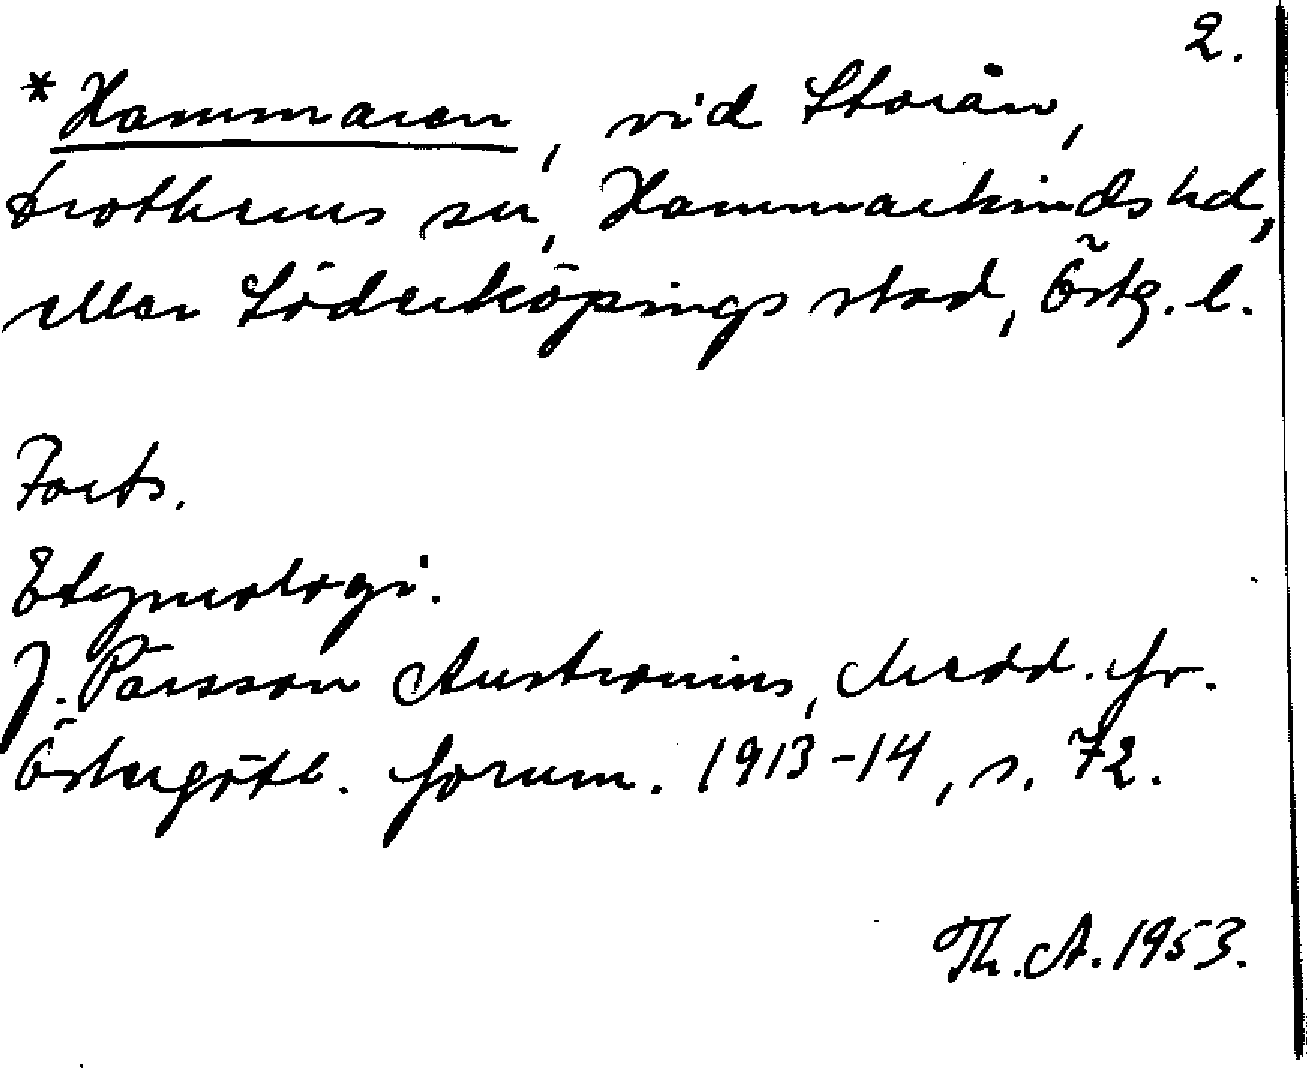 2.
*Hammaren, vid Storån,
Drothems sn, Hammarkinds hd,
eller Söderköpings stad, Östg. l.
Forts.
Etymologi.
J. Parsson Austronius, Medd. fr.
Östergötl. fornm. 1913-14, s. 72.
Th. A. 1953.